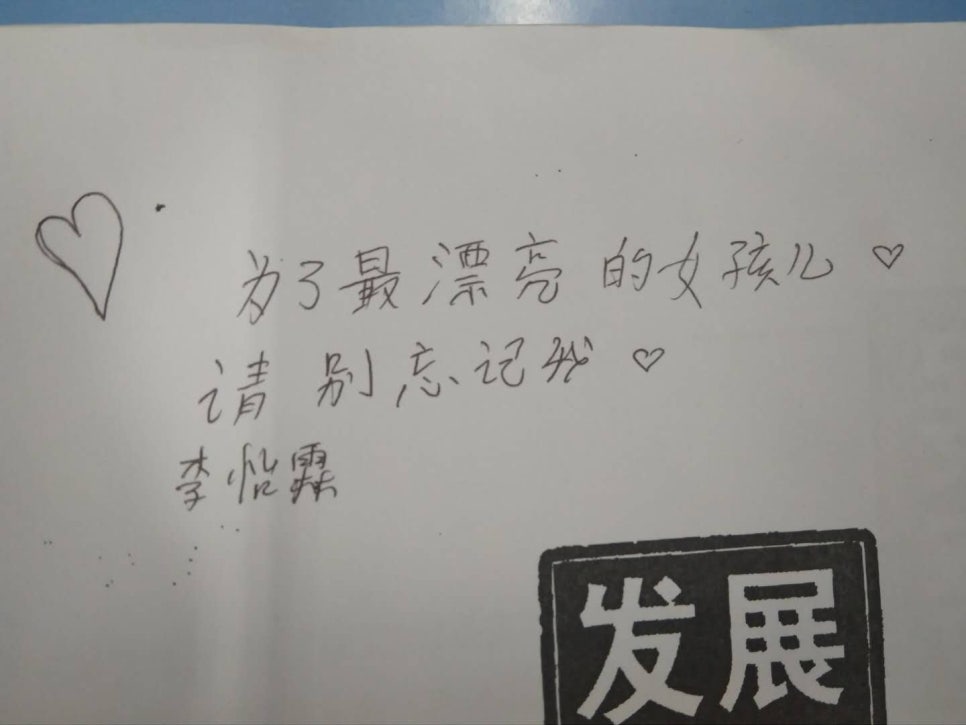 为了最漂亮的女孩儿♡
请别忘记我♡
李怡霖
发展